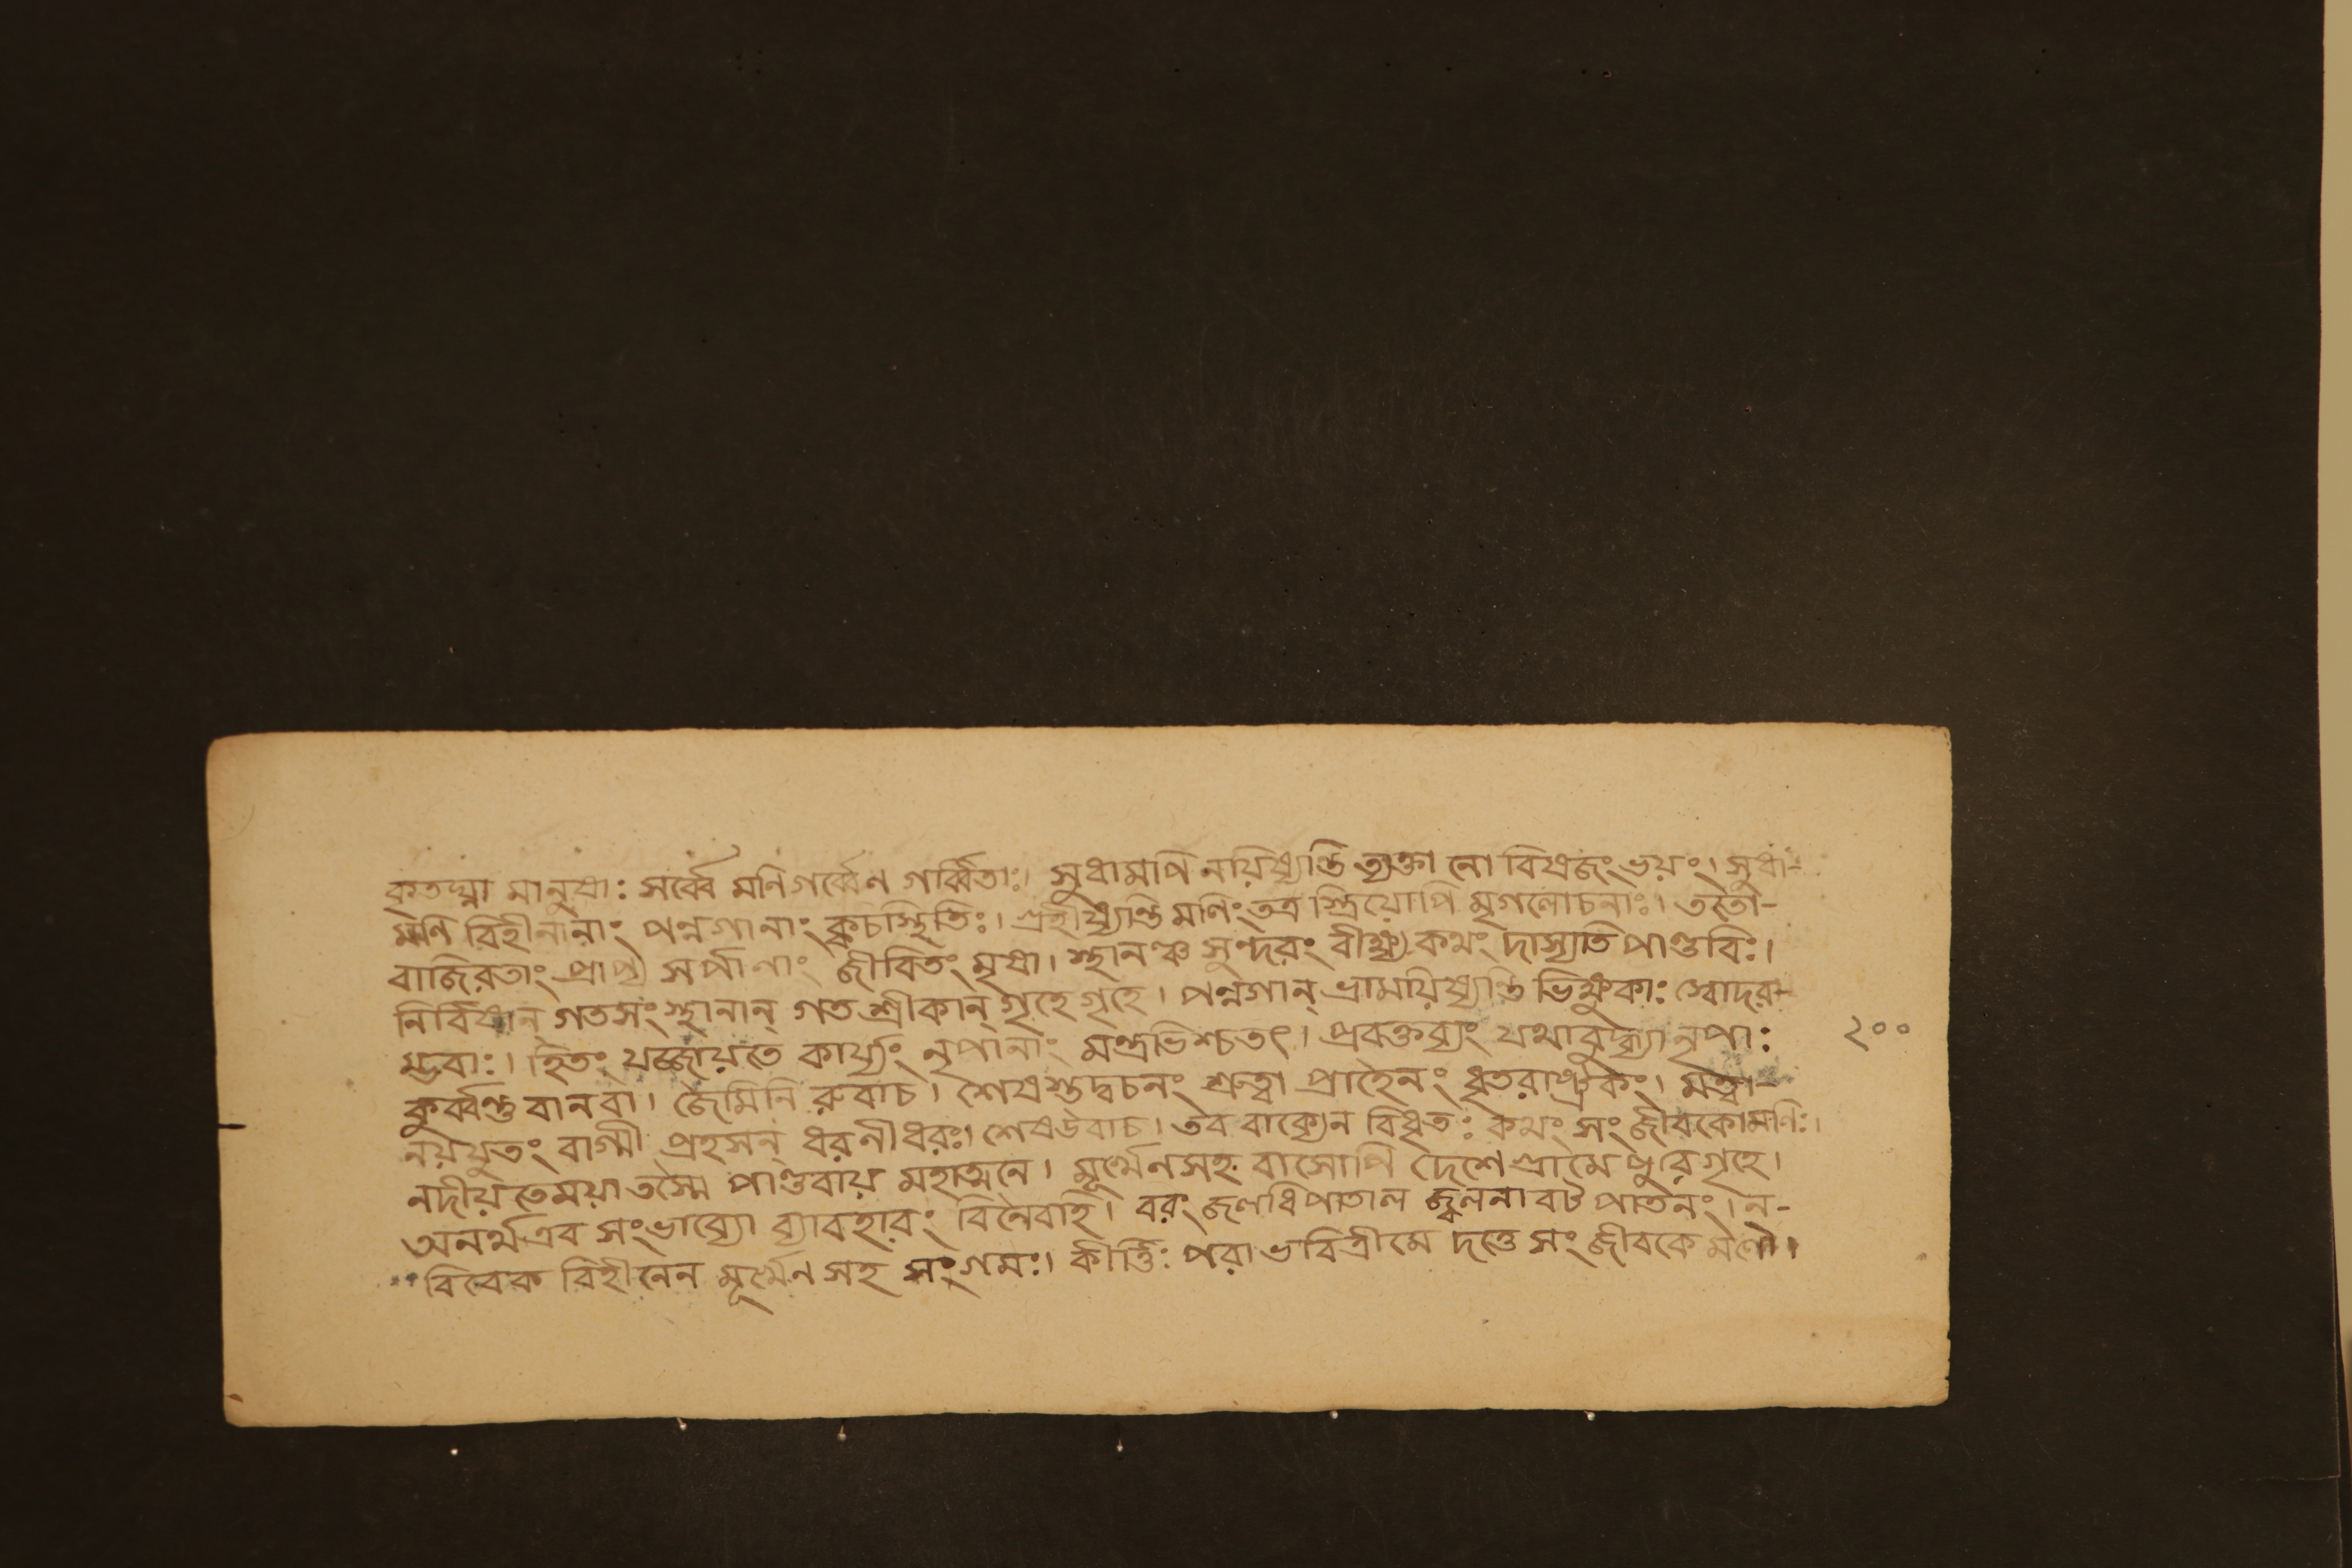 কৃতঘ্না মানুষাঃ সর্ব্বে মণিগর্ব্বেণ গর্ব্বিতাঃ। সুধামপি নয়িষ্যন্তি ত্যক্তা নো বিষজং ভয়ং। সুধা-
মণি বিহীনানাং পন্নগানাং ক্বচস্থিতিঃ। গ্রহীষ্যন্তি মণিং তত্র স্ত্রিয়োপি মৃগলোচনাঃ। ততো-
বাজিরতাং প্রাপ্য সর্পাণাং জীবিতং মৃষা। স্থানঞ্চ সুন্দরং বীক্ষ্য কথং দাস্যতি পাণ্ডবিঃ।
নির্বিষান্ গতসংস্থানান্ গতশ্রীকান্ গৃহে গৃহে। পন্নগান্ ভ্রাময়িষ্যন্তি ভিক্ষুকাঃ স্বোদর-
ম্ভরাঃ। হিতং যজ্জায়তে কার্য্যং নৃপানাং মন্ত্রভিশ্চতৎ। প্রবক্তব্যং যথাবুদ্ধ্যা নৃপাঃ ২০০
কুর্ব্বন্তু বানবা। জৈমিনি রুবাচ। শেষস্তদ্বচনং শ্রুত্বা প্রাহৈনং ধৃতরাষ্ট্রকং। মত্বা-
নয়যুতং বাগ্মী প্রহসন্ ধরনীধরঃ। শেষউবাচ। তব বাক্যেন বিধৃতঃ কথং সংজীবকোমণিঃ।
নদীয়তেময়া তস্মৈ পাণ্ডবায় মহাত্মনে। মূর্খেণসহ বাসোপি দেশে গ্রামে পুরে গৃহে।
অনর্থএব সংভাব্যো ব্যাবহারং বিনৈবহি। বরং জলধিপাতাল জ্বলনাবট পাতনং। ন-
বিবেক বিহীনেন মূর্খেণ সহ সংগমঃ। কীর্ত্তিঃ পরা ভবিত্রীমে দত্তে সংজীবকে মণৌ।